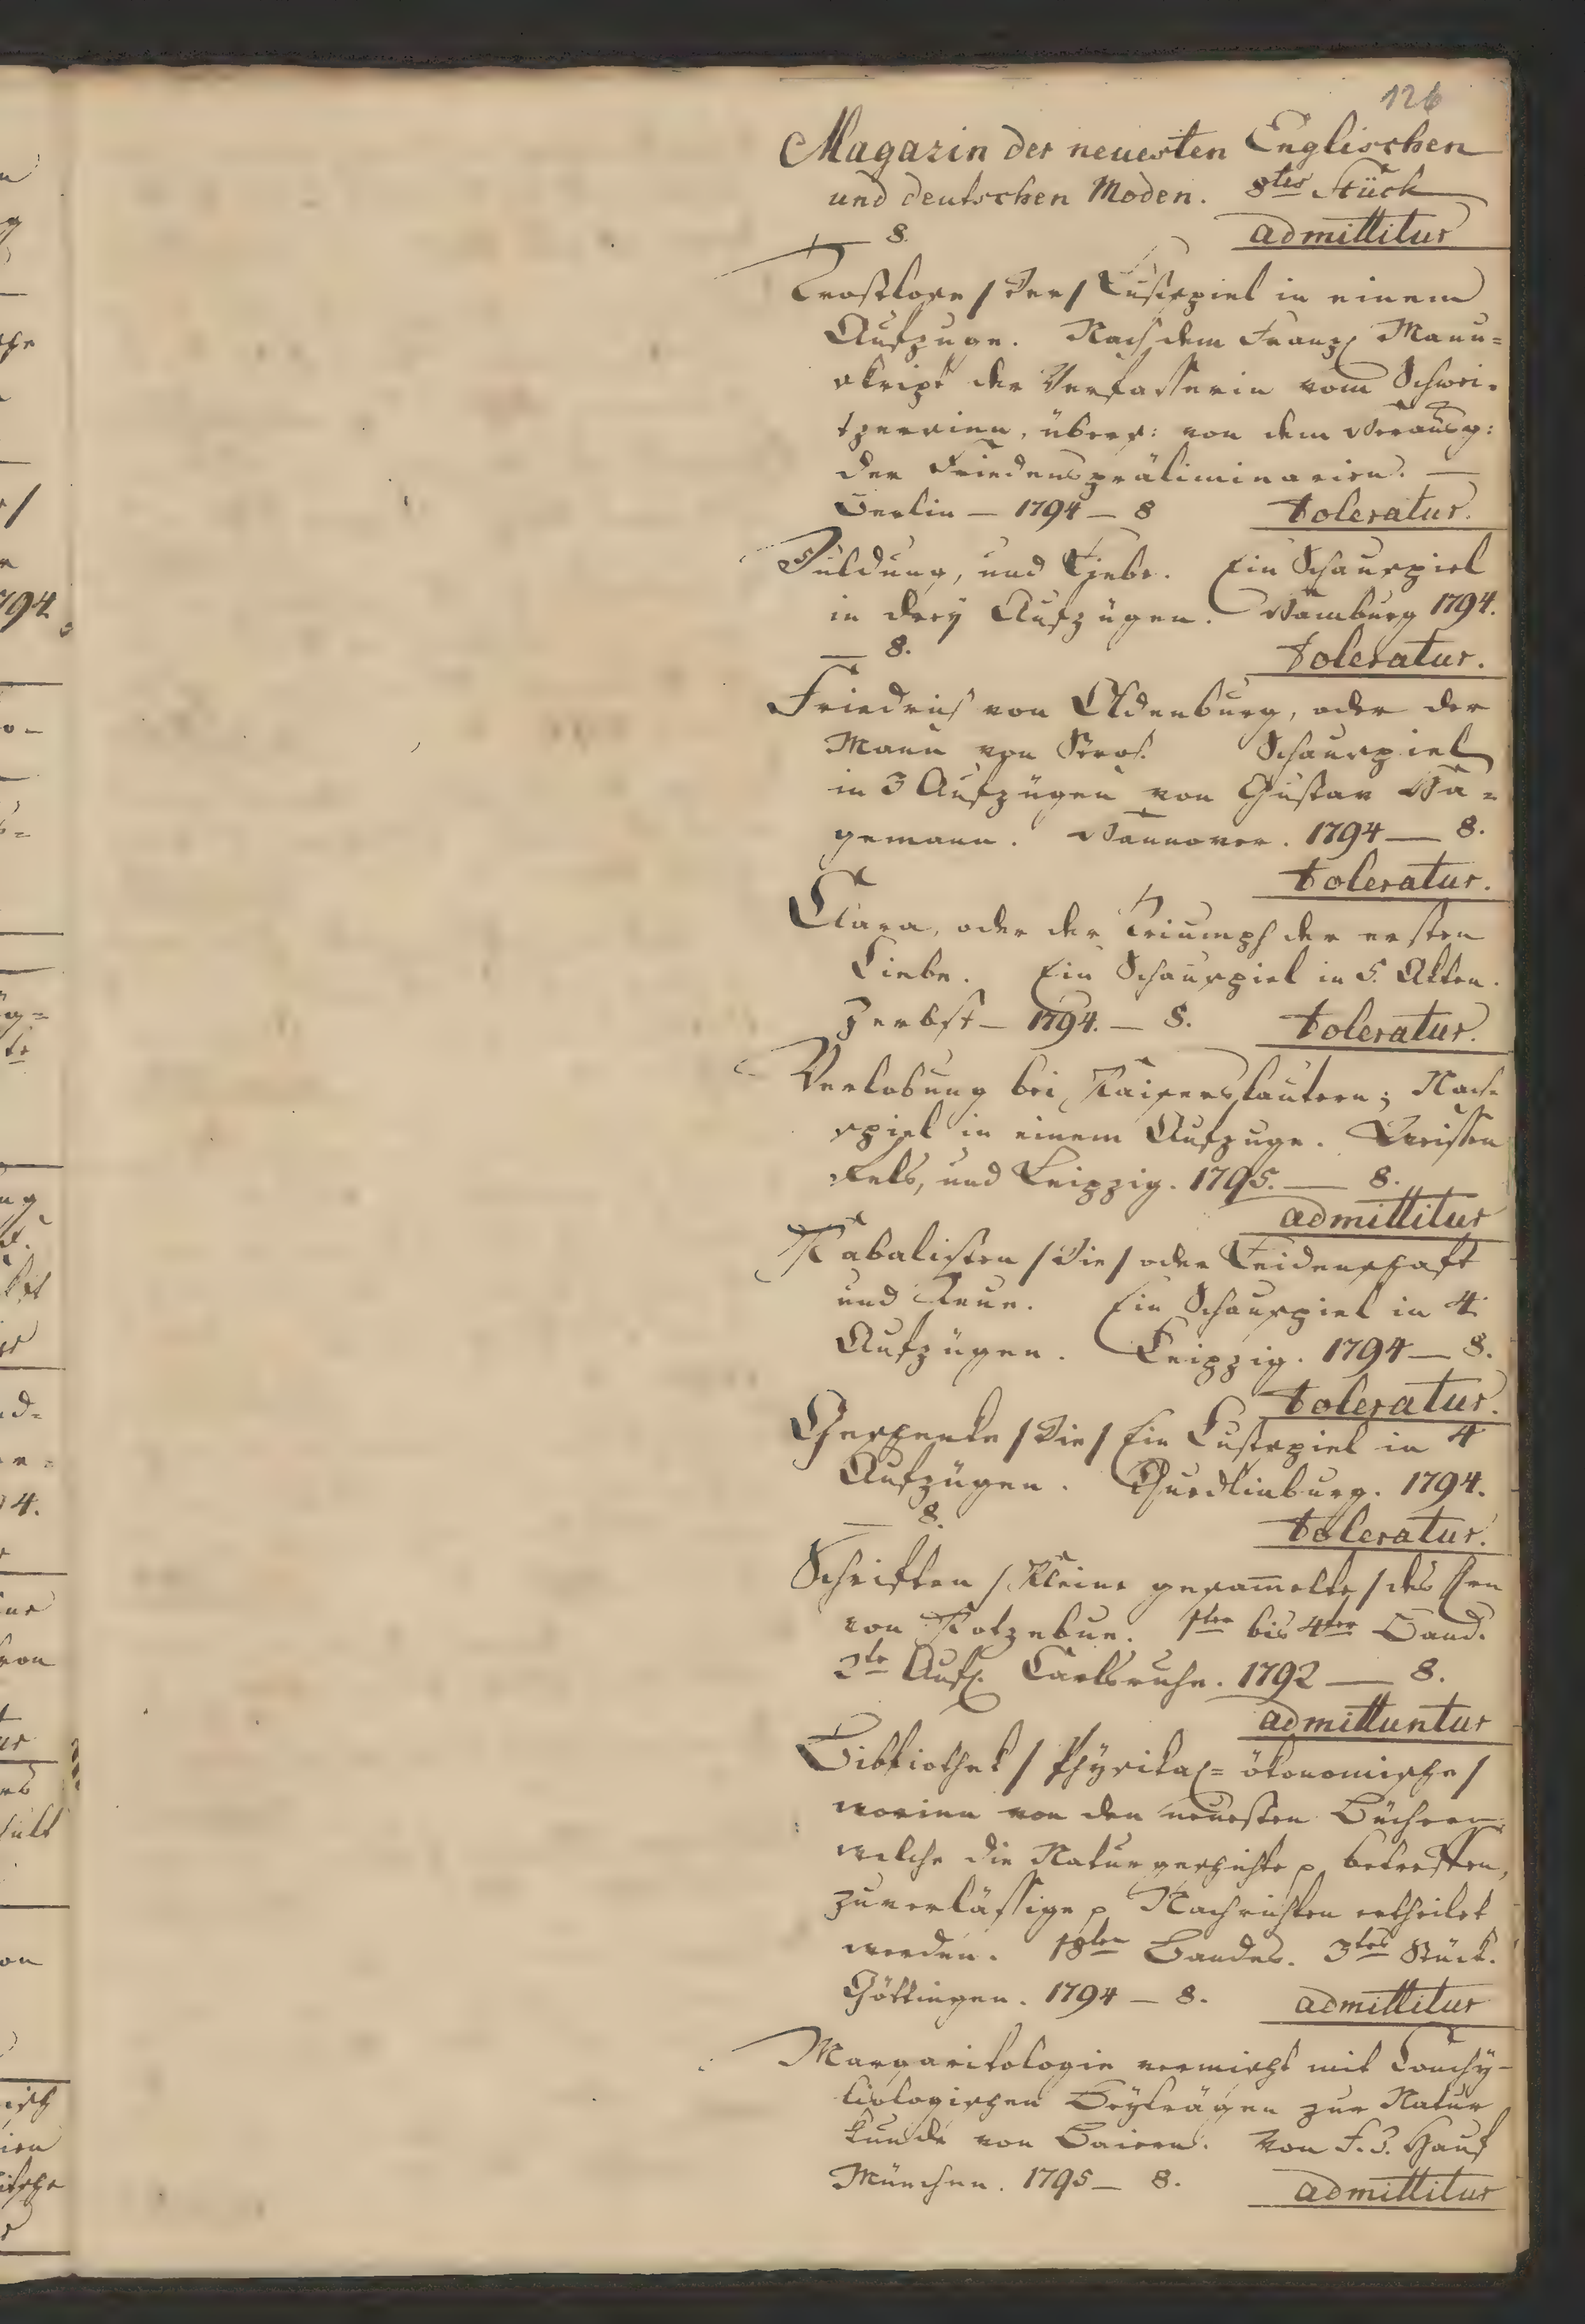 126
Magazin der neuesten Englischen
und deutschen Moden. 8tes Stück
— 8. admittitur
Trostlose /Der/ Lustspiel in einem
Aufzuge. Nach dem Franz. Manu=
skript der Verfasserin vom Schwei-
tzerinn, übers: von dem Herausg:
der Friedenspräliminarien. —
Berlin — 1794 — 8 toleratur.
Duldung, und Liebe. Ein Schauspiel
in drey Aufzügen. Hamburg 1794.
— 8. toleratur.
Friedrich von Oldenburg, oder der
Mann von Stroh. Schauspiel
in 3 Aufzügen von Gustav Ha=
gemann. Hannover. 1794 — 8.
toleratur.
Clara, oder der Triumph der ersten
Liebe. Ein Schauspiel in 5. Akten.
Zerbst — 1794. — 8. toleratur.
Verlobung bei Kaiserslautern; Nach
spiel in einem Aufzuge. Weissen
fels, und Leipzig. 1795. — 8.
admittitur
Kabalisten /Die/ oder Leidenschaft
und Reue. Ein Schauspiel in 4.
Aufzügen. Leipzig. 1794 — 8.
toleratur.
Geschenke /Die/ Ein Lustspiel in 4
Aufzügen. Quedlinburg. 1794.
— 8. toleratur.
Schriften /Kleine gesam̅elte/ des Hrn
von Kotzebue. 1ter bis 4ter Band.
2te Aufl. Carlsruhe. 1792 — 8.
admittuntur
Bibliothek /Physikal= ökonomische/
worinn von den neuesten Büchern,
welche die Naturgeschichte p betreffen,
zuverlässige p Nachrichten ertheilet
werden. 18ten Bandes. 3tes Stück.
Göttingen. 1794 — 8. admittitur
Margaritologie vermischt mit Conchÿ-
liologischen Beÿträgen zur Natur
kunde von Baiern. Von
München. 1795 — 8. admittitur